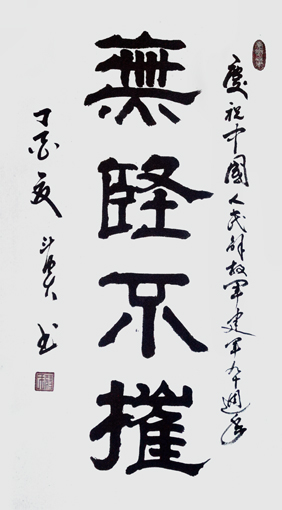 慶祝中國人民解放軍建軍九十週年
無堅不摧
丁酉夏 书